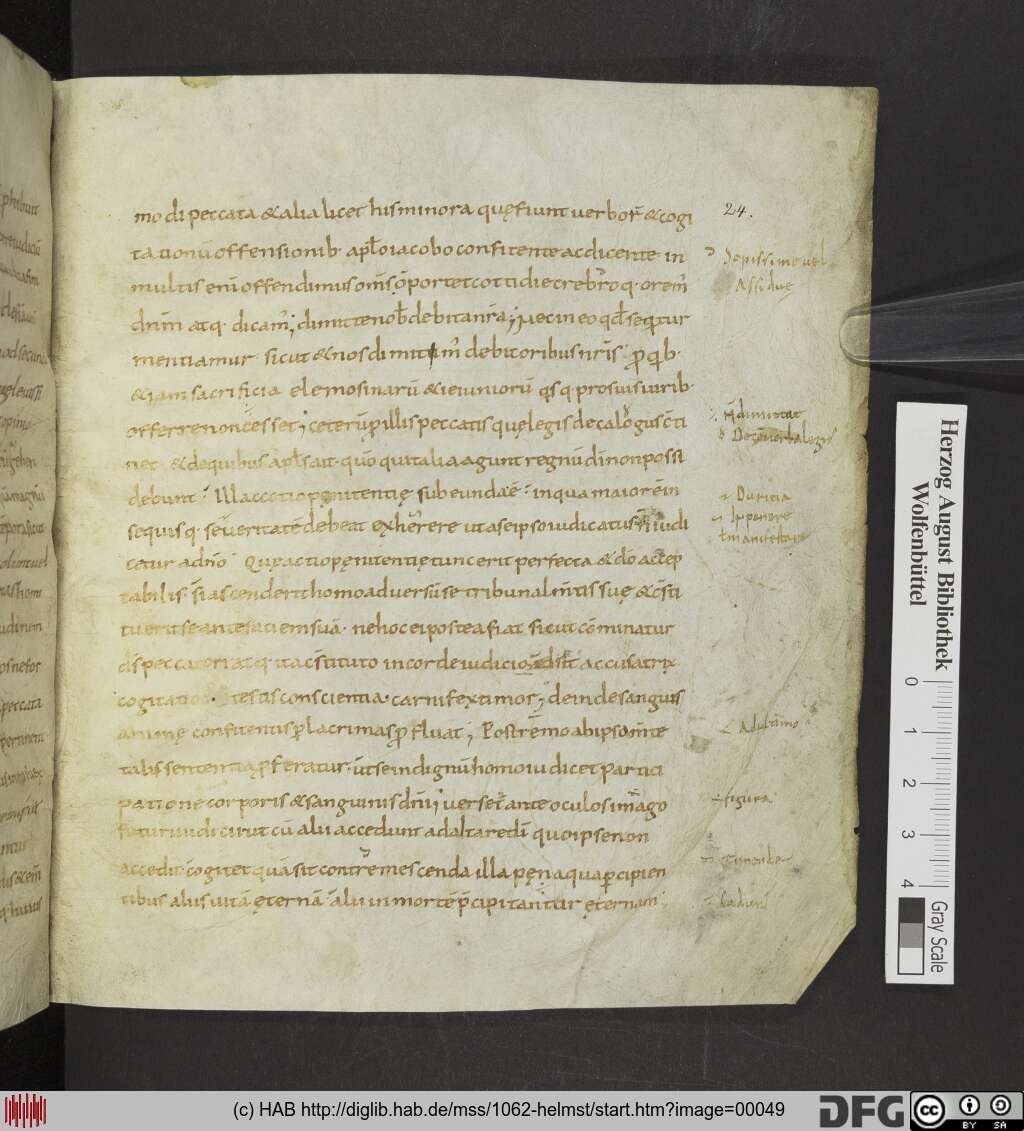 mo di peccata & alia licet his minora quę fiunt verbor̄ & cogi
tationū offensionib· apl̄o iacobo confitente ac dicente· in
multis enī offendimus om̄s oportet cottidie crebroq· orem̄
dn̄m atq· dicam̄; dimitte nob̄ debita nr̄a; Nec in eo qd̄ seqt̄ur
mentiamur· sicut & nos dimittim̄ debitoribus nr̄is·
&iam sacrificia elemosinarū & ieiuniorū prosuis virib·
offerre non cesset; ceterū p illis peccatis quę legis decalogus c̄ti
net & de quibus apl̄s ait· quō qui talia agunt regnū dī non possi
debunt· Illa cotio pęnitentię subeunda ē· in qua maiorē in
se quisq· severitatē debeat exhercere ut a se ipso iudicatus n̄ iudi
cetur a dn̄o· Quę actio pęnitentię tunc erit perfecta & dō accep
tabilis· si ascenderit homo adversū se tribunal m̄tis suę & c̄sti
tuerit se ante faciem suā· ne hoc ei postea fiat sicut cōminatur
dš peccatori atq· ita c̄stituto in corde iudicio adsit accusatrix
cogitatio· testis conscientia· carnifex timor; deinde sanguis
animę confitentis p lacrimas pfluat; Postremo ab ipso m̄te
talis sententia pferatur· ut se indignū homo iudicet partici
patione corporis & sanguinis dn̄i; verset̄ ante oculos imago
futuri iudicii ut cū alii accedunt ad altare dī quo ipse non
accedit· cogitet quā sit contremescenda illa pęna qua pcipien
tibus aliis vitā ęternā· alii in mortē pcipitantur ęternam;
24.
Sepissime vel
Assidue
Decē verba legis
Duricia
figura
(c) HAB http://diglib.hab.de/mss/1062-helmst/start.htm?image=00049
Herzog August Bibliothek
Wolfenbüttel
0 1 2 3 4
Gray Scale
DFG
cc BY SA